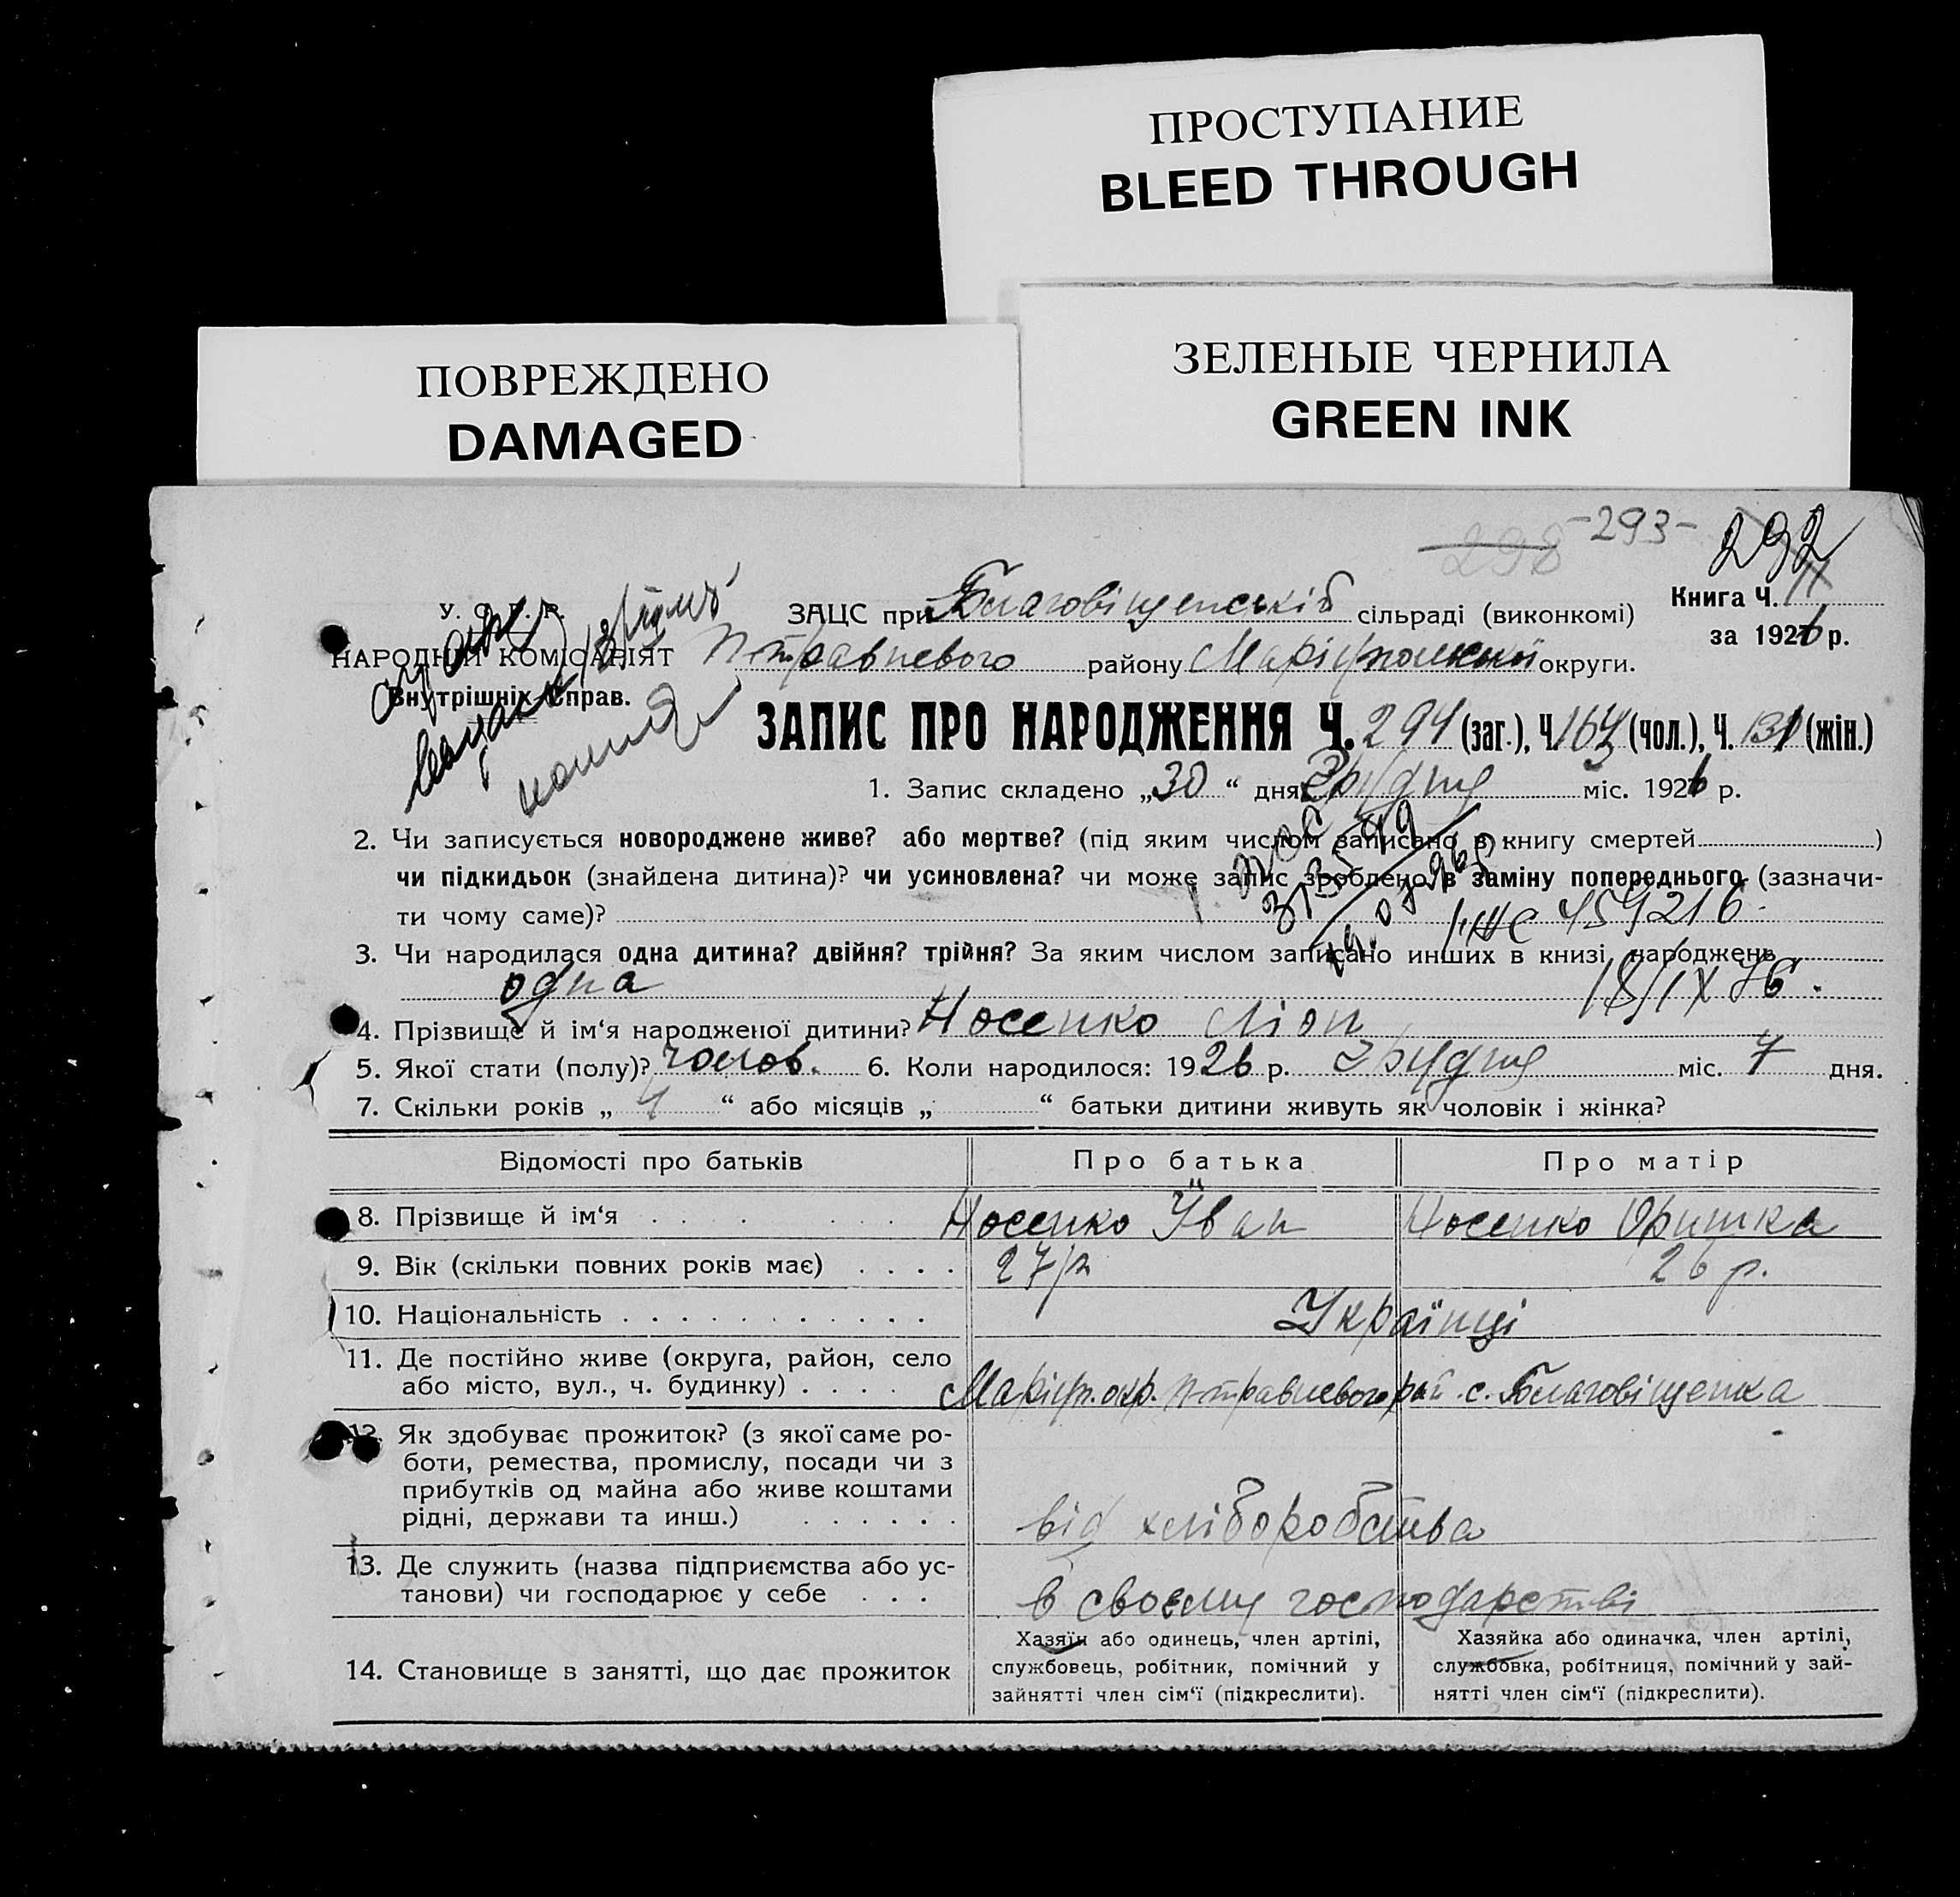 ПРОСТУПАНИЕ
BLEED THROUGH
ПОВРЕЖДЕНО
DAMAGED
ЗЕЛЕНЫЕ ЧЕРНИЛА
GREEN INK
298 -293- 292
У. С. Р. Р.
НАРОДНІЙ КОМІСАРІЯТ
Внутрішніх Справ.
Книга Ч. 11
за 1926 р.
ЗАЦС при Благовіщенській сільраді (виконкомі)
П-травневого району Маріупольської округи.
ЗАПИС ПРО НАРОДЖЕННЯ Ч. 294 (заг.), Ч. 163 (чол.), Ч. 131 (жін.)
1. Запис складено „30“ дня Грудня міс. 1926 р.
2. Чи записується новороджене живе? або мертве? (під яким числом записано в книгу смертей )
чи підкидьок (знайдена дитина)? чи усиновлена? чи може запис зроблено в заміну попереднього (зазначи-
ти чому саме)?
459216
3. Чи народилася одна дитина? двійня? трійня? За яким числом записано инших в книзі народжень
одна 18/IX 76.
4. Прізвище й ім‘я народженої дитини? Носенко Ліон
5. Якої стати (полу)? чолов. 6. Коли народилося: 1926 р. Грудня міс. 7 дня.
7. Скільки років „ 4 “ або місяців „ “ батьки дитини живуть як чоловік і жінка?
Відомості про батьків Про батька Про матір
8. Прізвище й ім‘я . . . . . . Носенко Їван Носенко Оришка
9. Вік (скільки повних років має) . . . . 27 р. 26 р.
10. Національність . . . . . . . . . . . Українці
11. Де постійно живе (округа, район, село
або місто, вул., ч. будинку) . . . . Маріуп. окр. П-травневого рай. с. Благовіщенка
12. Як здобуває прожиток? (з якої саме ро-
боти, ремества, промислу, посади чи з
прибутків од майна або живе коштами
рідні, держави та инш.) . . . . . . від хліборобства
13. Де служить (назва підприємства або ус-
танови) чи господарює у себе . . . в своєму господарстві
14. Становище в занятті, що дає прожиток
Хазяїн або одинець, член артілі,
службовець, робітник, помічний у
зайнятті член сім‘ї (підкреслити).
Хазяйка або одиначка, член артілі,
службовка, робітниця, помічний у зай-
нятті член сім‘ї (підкреслити).